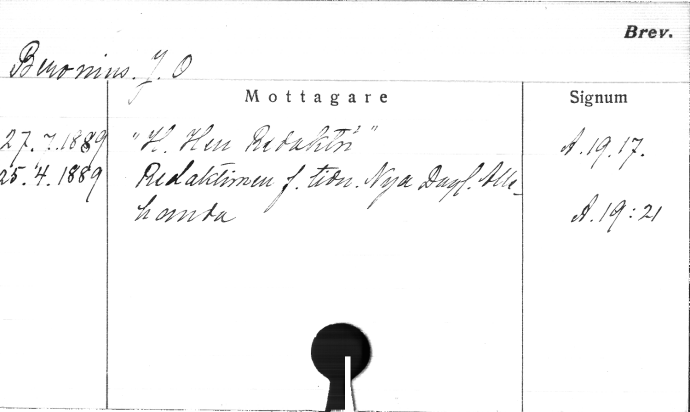 Brev.
Beronius. J. O
Mottagare Signum
27.7.1889 "H. Herr Redaktör" A.19.17.
25.4.1889 Redaktionen f. tidn. Nya Dagl. Alle-
handa A.19:21